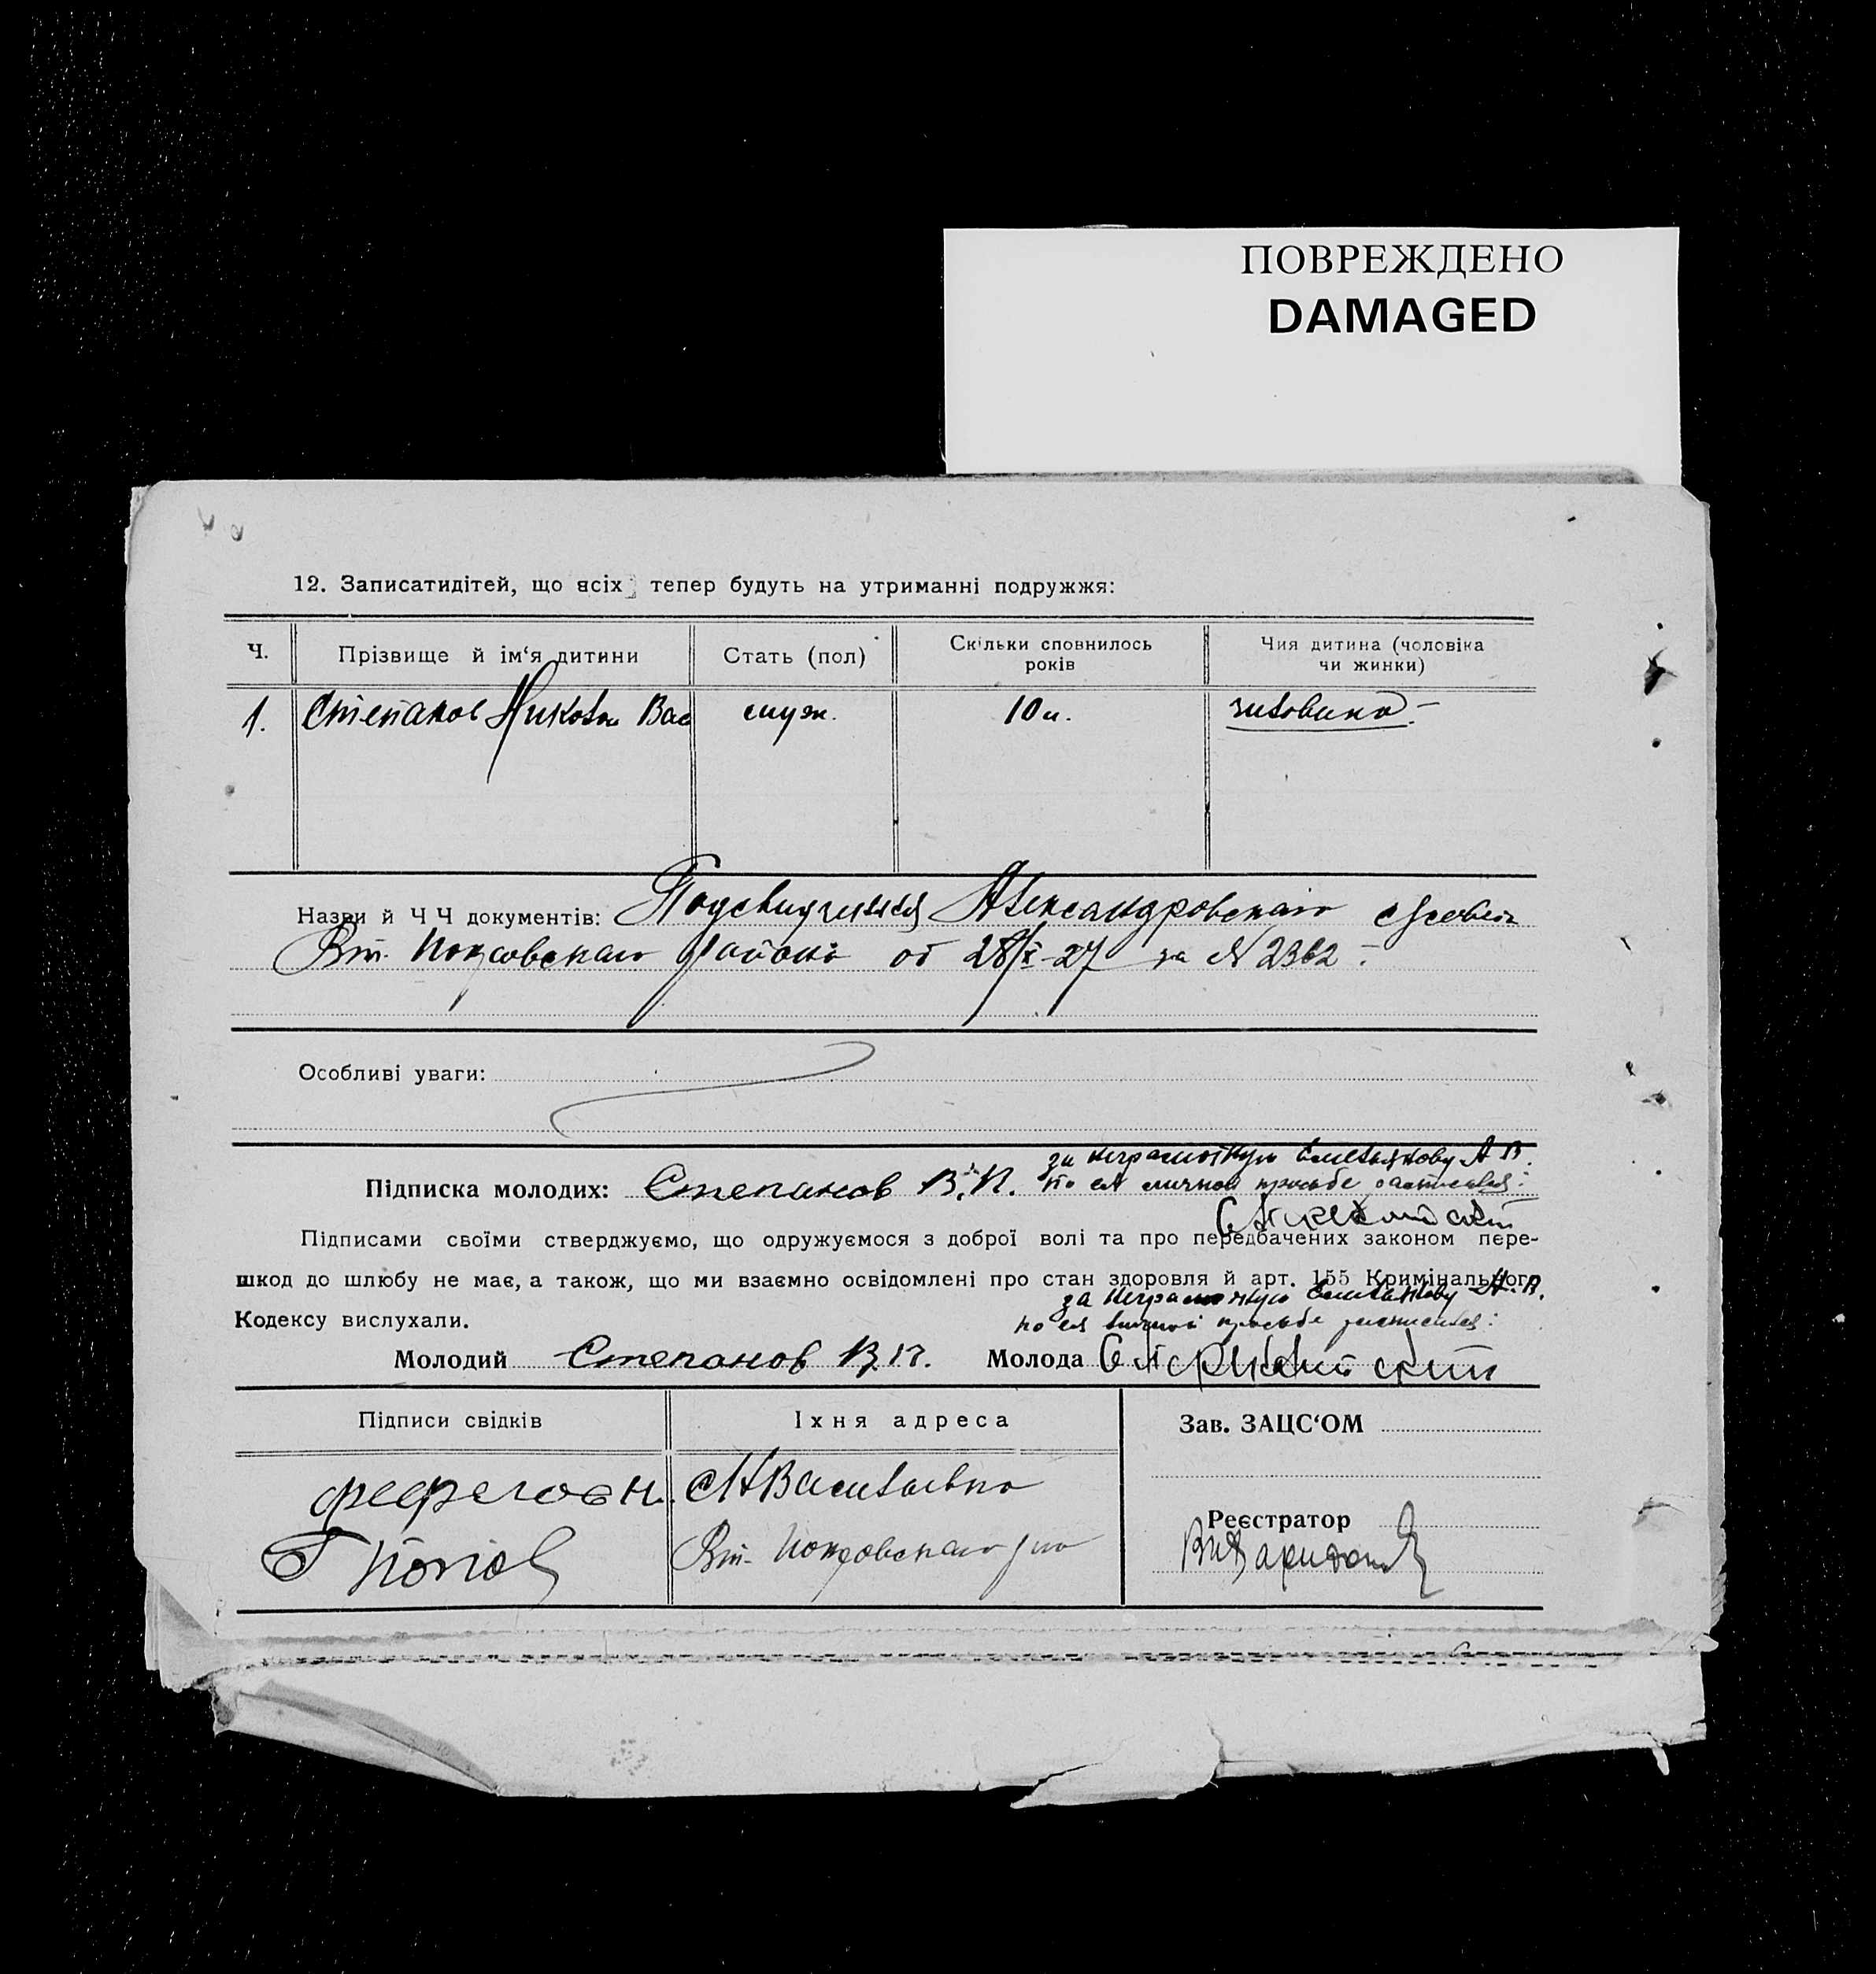 ПОВРЕЖДЕНО
DAMAGED
12. Записатидітей, що всіх тепер будуть на утриманні подружжя:
Ч. Прізвище й ім‘я дитини Стать (пол) Скільки сповнилось років Чия дитина (чоловіка чи жинки)
1. Степанов Николай Вас муж. 10 л.
Назви й Ч Ч документів: Александровского
Вт. Покровского района от 28/X-27 за № 2362
Особливі уваги:
за неграмотную Емельянову А В.
Підписка молодих: Степанов В. П. по ея личной просьбе расписался:
Підписами своїми стверджуємо, що одружуємося з доброї волі та про передбачених законом пере-
шкод до шлюбу не має, а також, що ми взаємно освідомлені про стан здоровля й арт. 155 Кримінального
за неграмотную Емельянову А. В.
Кодексу вислухали. по ея личной просьбе расписался:
Молодий Степанов В. П. Молода
Підписи свідків Їхня адреса Зав. ЗАЦС‘ОМ
Реєстратор
Попов Вт. Покровского